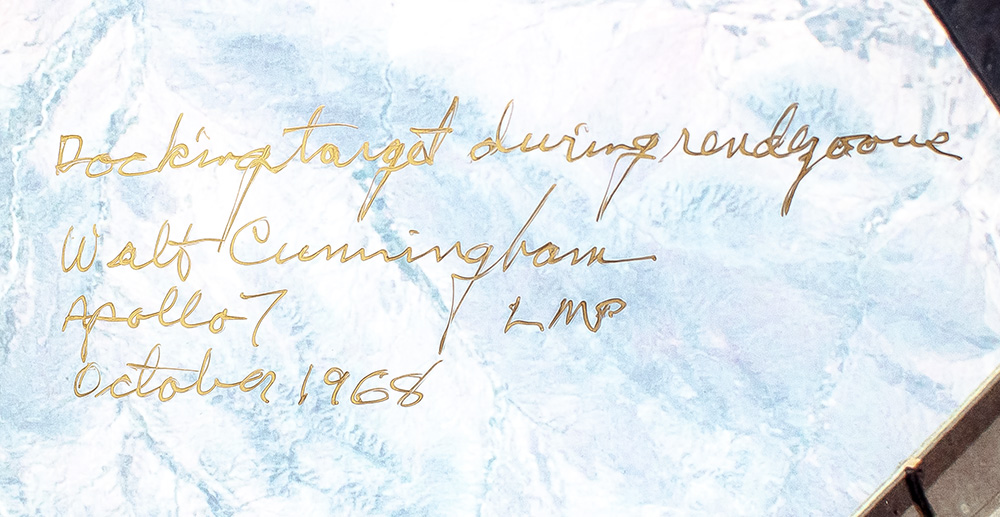 Docking target during rendezvous
Walt Cunningham
Apollo 7 LMP
October 1968